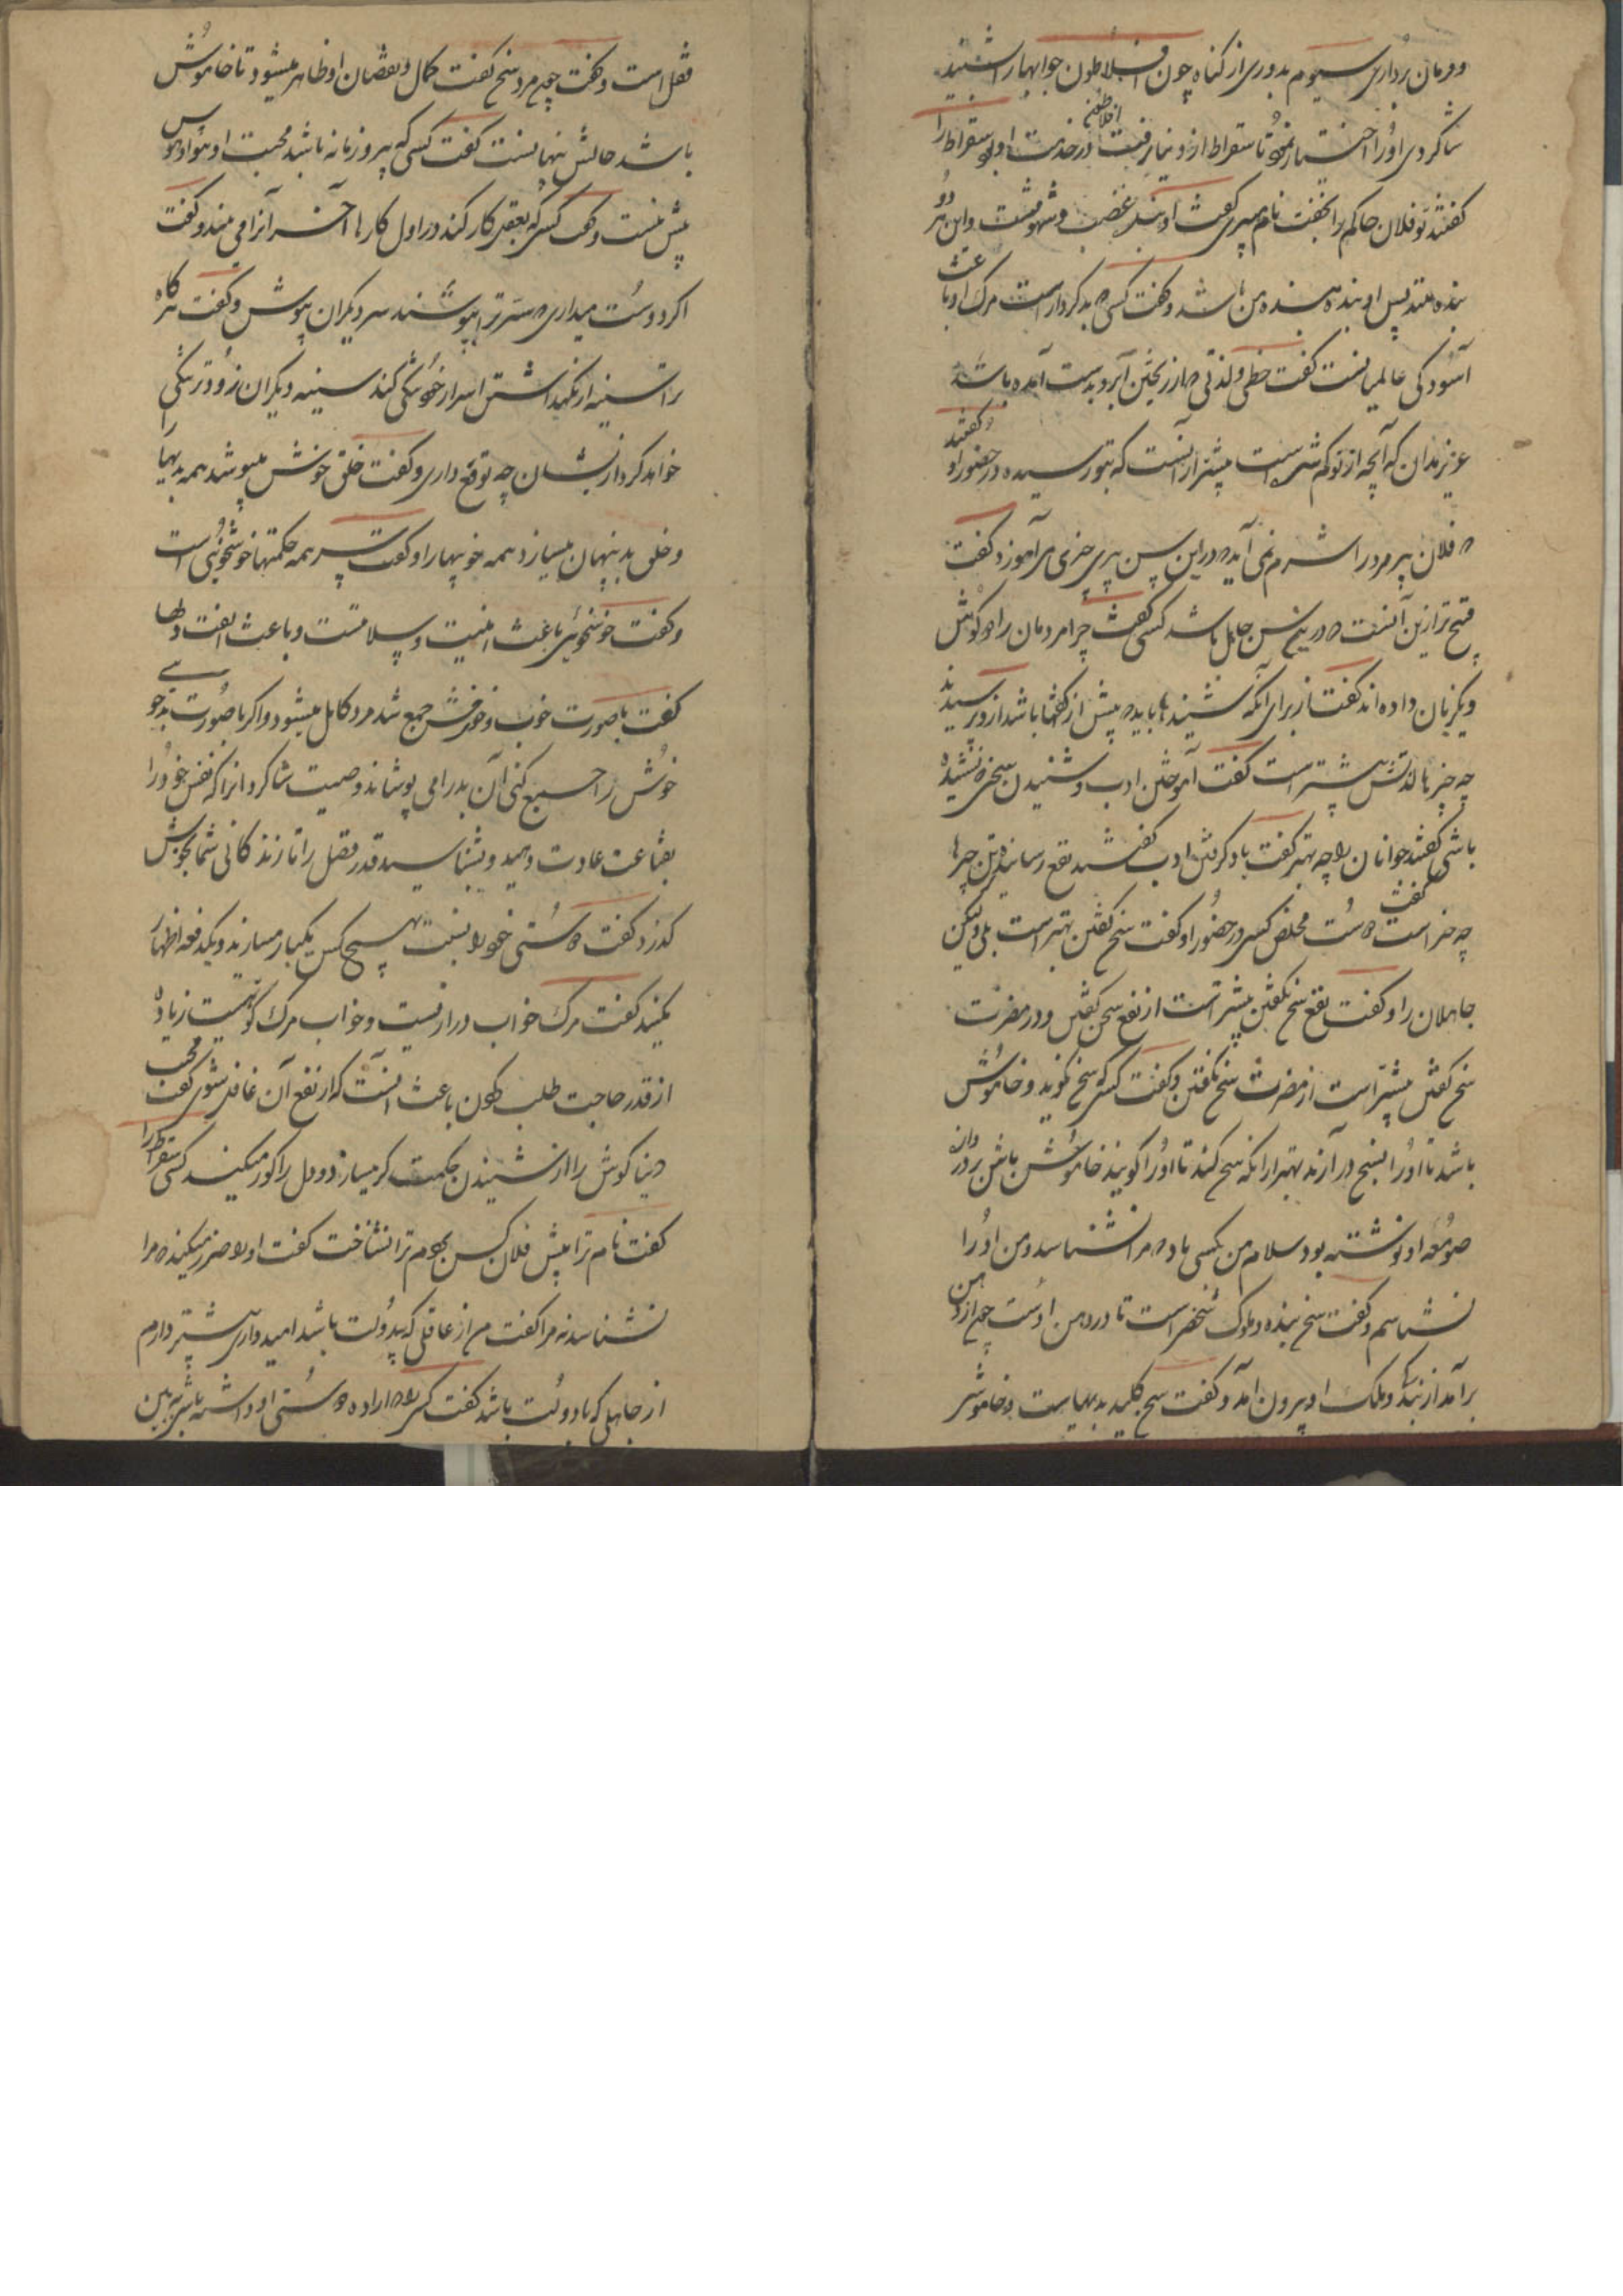 وفرمان برداری سیوم بدوری از گناه چون افلاطون جوابها را شنید
شاکردی او را اختیار نمود تا سقراط از دنیا رفت افلاطون در خدمت او بود سقراط را
کفتند تو فلان حاکم را بکفت نام میبری کفت او بنده غضب و شهوتست و این هر دو
بنده منند پس او بنده بنده من باشد و کفت کسی که بدکردار است مرک او باعث
آسودکی عالمیانست کفت حظی و لذتی که از ریختن آبرو بدست آمده باشد
عزیز مدان که آنچه از تو کم شده است بیشتر از آنست که بتو رسیده در حضور او کفتند
که فلان پیر مرد را شرم نمی آید که در این سن پیری چیزی می آموزد کفت
قبیح تر ازین آنست که درین سن جاهل باشد کسی کفت چرا مردمان را دو کوش
و یکزبان داده اند کفت از برای آنکه شنیدنها باید که بیش از کفتنها باشد از و پرسیدند
چه چیز با لذتش بیشتر است کفت آموختن ادب و شنیدن سخن که نشنیده
باشی کفتند جوانان را چه بهتر کفت یاد کرفتن ادب کفتند نفع رساننده ترین چیزها
چه چیز است کفت دوست مخلص کسی در حضور او کفت سخن کفتن بهتر است بلی ولیکن
جاهلان را و کفت نفع سخن نکفتن بیشتر است از نفع سخن کفتن و در مضرت
سخن کفتن بیشتر است از مضرت سخن نکفتن و کفت کسی که سخن نکوید و خاموش
باشد تا او را بسخن در آرند بهتر از انکه سخن کند تا او را کویند خاموش باش بر در دروازه
صومعه او نوشته بود سلام من بکسی باد که مرا نشناسد و من او را
نشناسم و کفت سخن بنده و ملوک شخص است تا در دهن اوست چون از دهن
برآمد از بندکی و ملک او بیرون آمد و کفت سخن کلید بدیهاست و خاموشی
قفل است و کفت چون مرد سخن کفت کمال و نقصان او ظاهر میشود تا خاموش
باشد حالش پنهانست کفت کسی که پیرو زمانه باشد محبت او هوا و هوس
بیش نیست و کفت کسی که بعقل کار کند در اول کارها آخر آنرا می بیند و کفت
اکر دوست میداری که ستر ترا بپوشند سر دیکران بپوش و کفت هرکاه
ترا سینه از نکهداشتن اسرار خود تنکی کند سینه دیکران زودتر تنکی
خواهد کرد از ایشان چه توقع داری و کفت خلق خوش میپوشد همه بدیها را
و خلق بد پنهان میسازد همه خوبیها را و کفت سر همه حکمتها خوشخوئی است
و کفت خوشخوئی باعث امنیت و سلامتست و باعث الفت دلها
کفت با صورت خوب و خوی خوش جمع شد مرد کامل میشود و اکر با صورت بد خوی
خوش را جمع کنی آن بد را می پوشاند وصیت شاکردانرا که نفس خود را
بقناعت عادت دهید و بشناسید قدر فضل را تا زندکانی شما بخوشی
کذرد کفت دوستی خود را بنسبت هیچ کس یکبار مسازند و یکدفعه اظهار
نکنید کفت مرک خواب درازیست و خواب مرک کوتهیست زیاده
از قدر حاجت طلب کردن باعث آنست که از نفع آن غافل شوی کفت محبت
دنیا کوش را از شنیدن حکمت کر میسازد و دل را کور میکند کسی سقراط را
کفت نام ترا پیش فلان کس بردم ترا نشناخت کفت او را ضرر میکند که مرا
نشناسد نه مرا کفت من از عاقلی که بیدولت باشد امیدواری بیشتر دارم
از جاهلی که با دولت باشد کفت کسی را که اراده دوستی او داشته باشی ببین